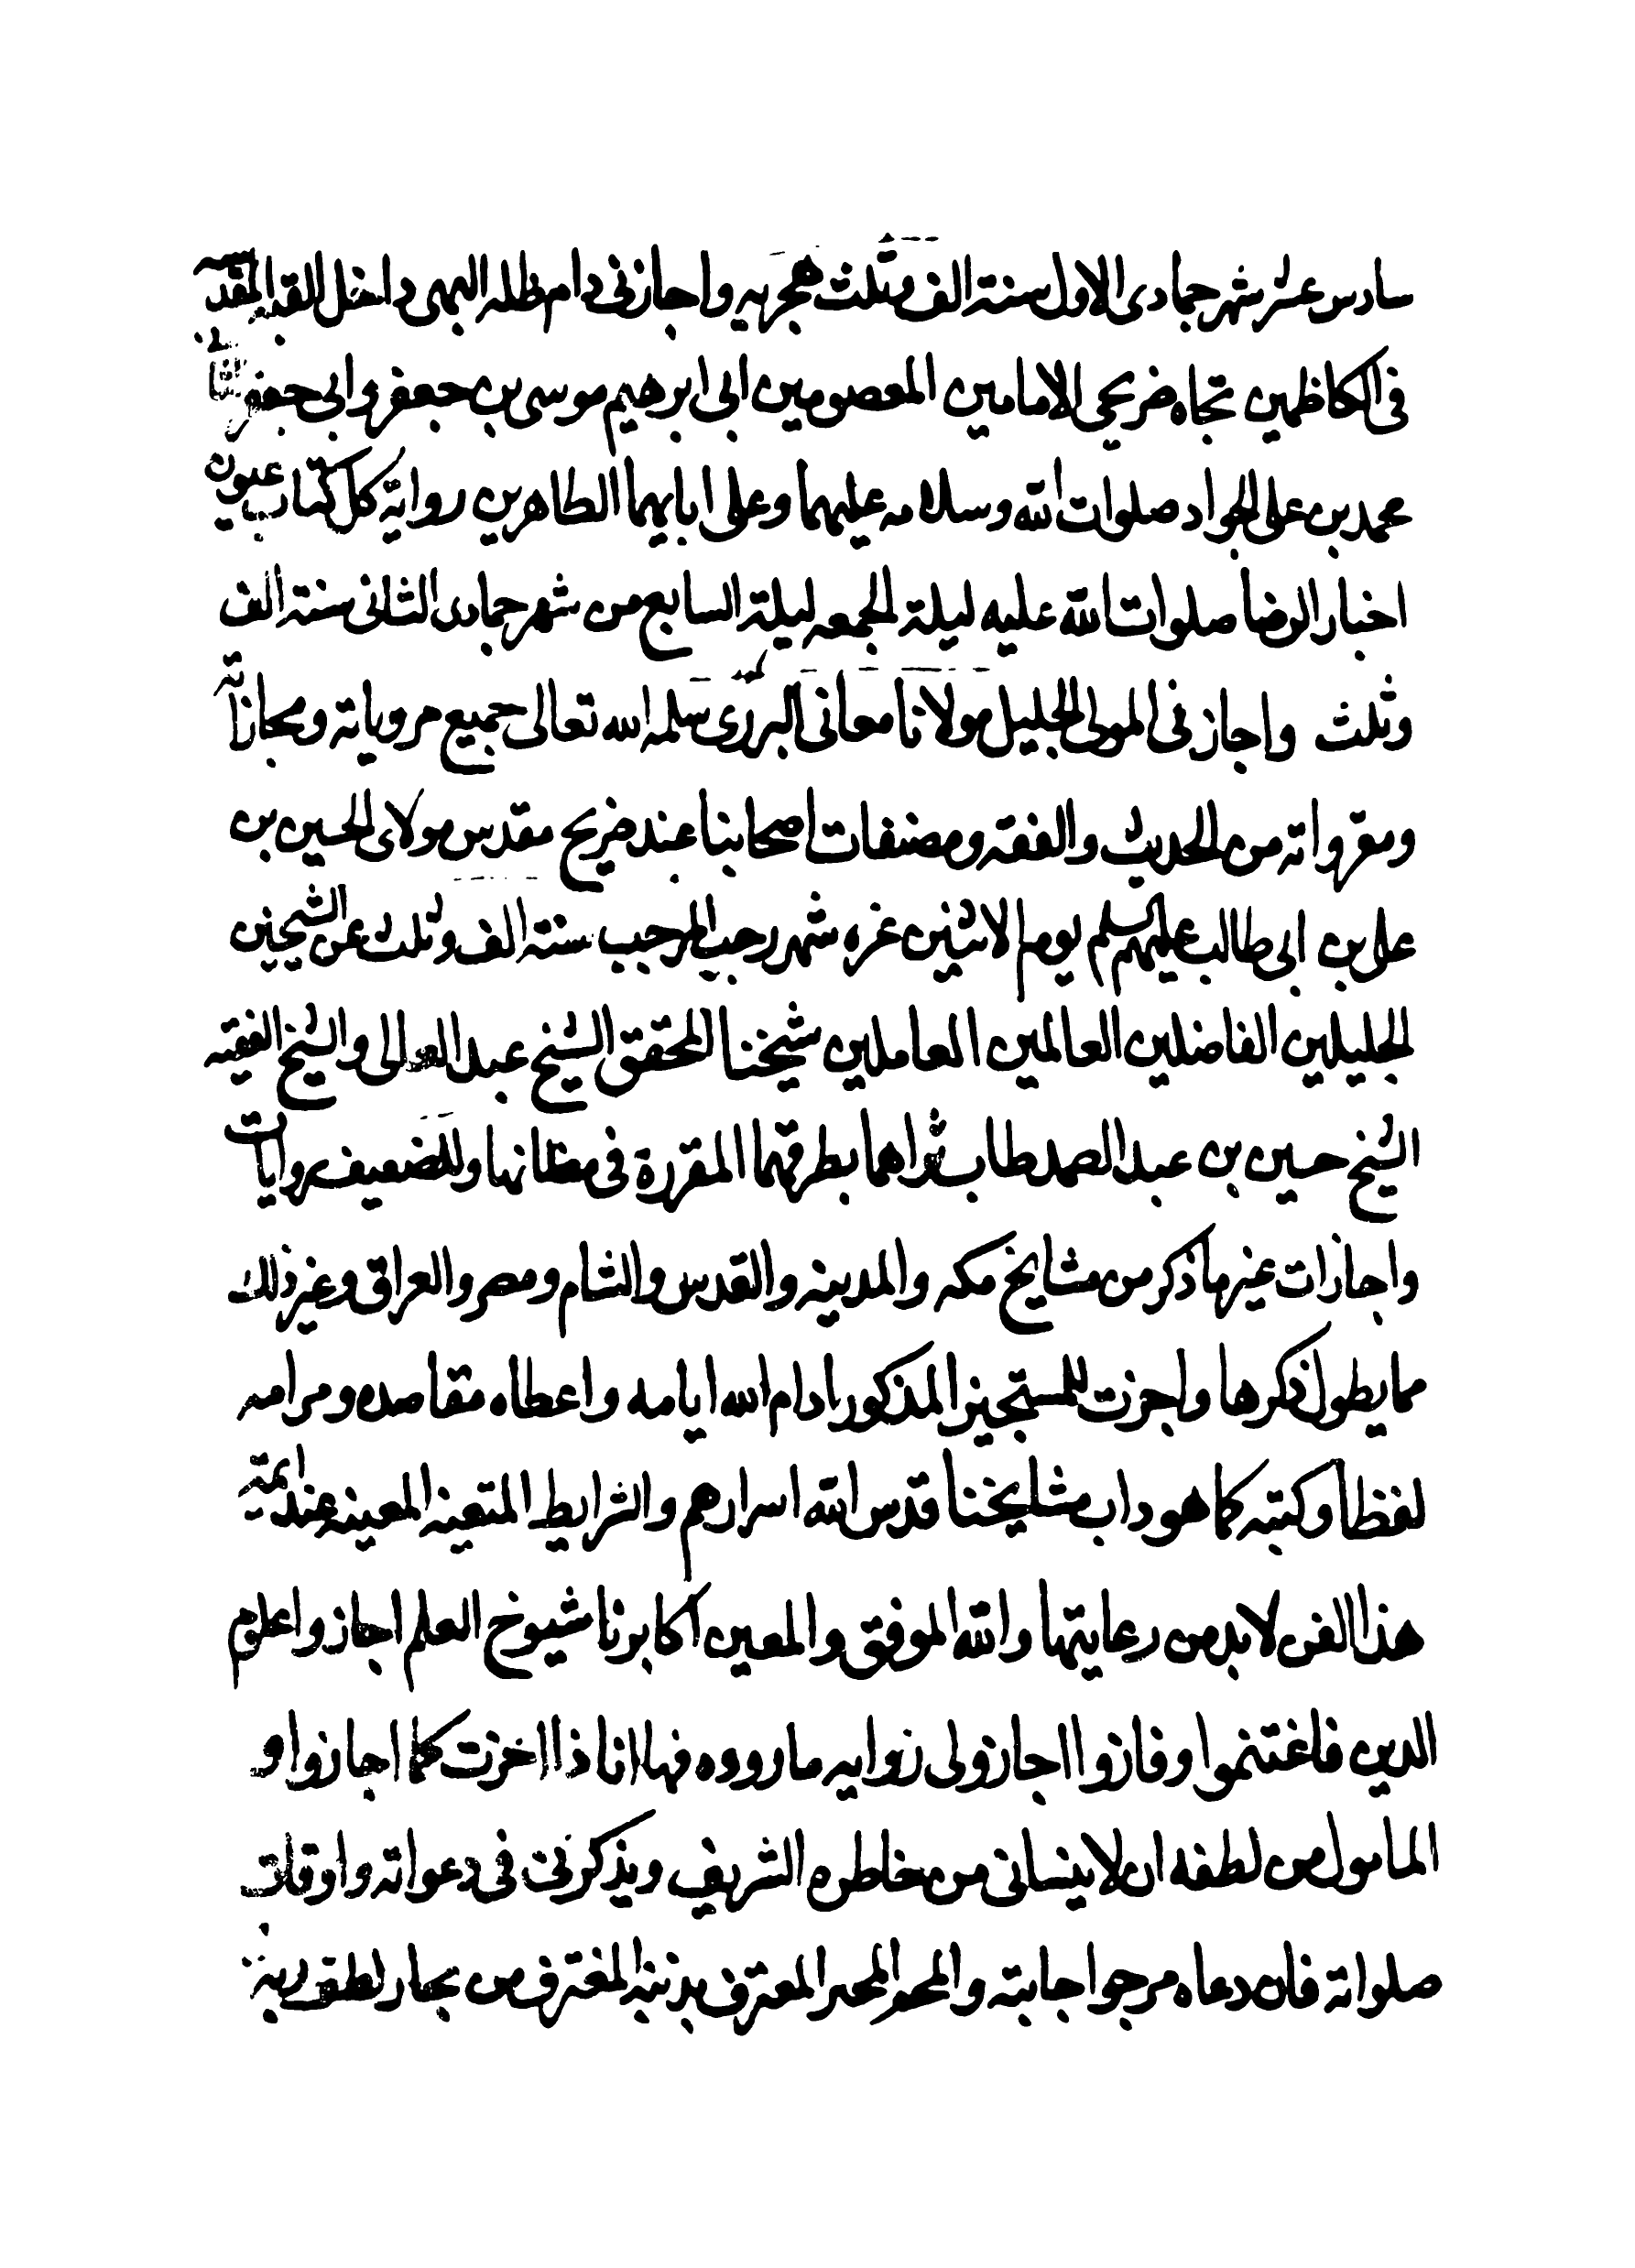 سادس عشر شهر جمادى الاول سنة الف وثلث هجريه واجازنى دام ظله البهى داخل القبه المقدسه
فى الكاظمين تجاه ضريحى الامامين المعصومين ابى ابرهيم موسى بن جعفر وابى جعفر الثانى
محمد بن على الجواد صلوات الله وسلامه عليهما وعلى ابايهما الطاهرين رواية كل كتاب عيون
اخبار الرضا صلوات الله عليه ليلة الجمعه ليلة السابع من شهر جمادى الثانى سنة الف
وثلث واجازنى المولى الجليل مولانا معانى التبريزى سلمه الله تعالى جميع مروياته ومجازاته
ومقرواته من الحديث والفقه ومصنفات اصحابنا عند ضريح مقدس مولاى الحسين بن
على بن ابى طالب عليهم السلم يوم الاثنين غره شهر رجب المرجب سنة الف وثلث عن الشيخين
الجليلين الفاضلين العالمين العاملين شيخنا المحقق الشيخ عبد العالى والشيخ الفقيه
الشيخ حسين بن عبد الصمد طاب ثراهما بطرقهما المقررة فى مظانها وللضعيف روايات
واجازات غير ما ذكر من مشايخ مكه والمدينه والقدس والشام ومصر والعراق وغير ذلك
مما يطول ذكرها واجزت للمستجيز المذكور ادام الله ايامه واعطاه مقاصده ومرامه
لفظا وكتبه كما هو داب مشايخنا قدس الله اسرارهم والشرايط المتعينه المعينه عند ائمة
هذا الفن لا بد من رعايتها والله الموفق والمعين اكابرنا شيوخ العلم اجازوا علوم
الدين فاغتنموا وفازوا اجازولى روايه ما رووه فها انا ذا اجزت كما اجازوا و
المامول من لطفه ان لا ينسانى من خاطره الشريف ويذكرنى فى دعواته واوقات
صلواته فان دعاه مرجوا جابته والمحرر المعترف بذنبه المغترف من بحار لطف ربه